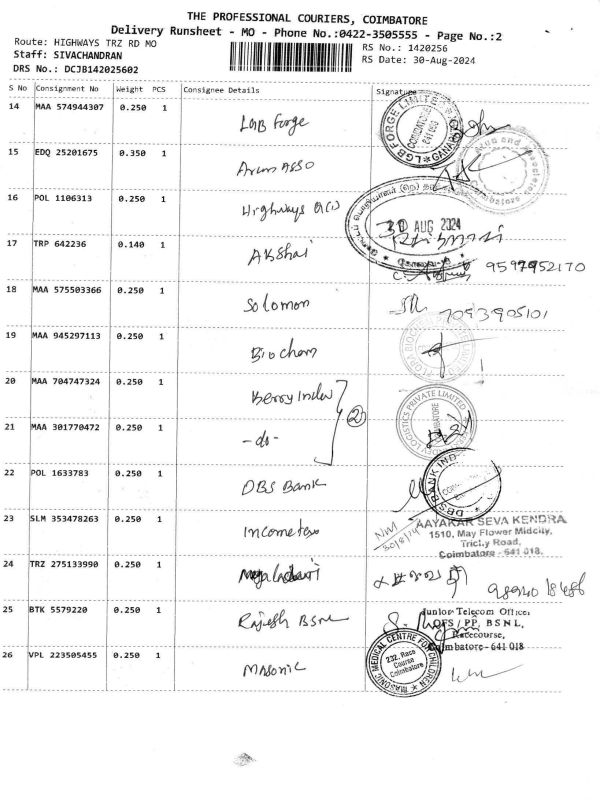 THE PROFESSIONAL COURIERS, COIMBATORE
Delivery Runsheet - MO - Phone No.:0422-3505555 - Page No.:2
Route: HIGHWAYS TRZ RD MO
RS No.: 1420256
Staff: SIVACHANDRAN
RS Date: 30-Aug-2024
DRS No.: DCJB142025602
S No Consignment No Weight PCS Consignee Details Signature
14 MAA 574944307 0.250 1 LGB Forge
LGB FORGE LIMITED
COIMBATORE
15 EDQ 25201675 0.350 1 Arun ASSO
and Associates
Coimbatore
16 POL 1106313 0.250 1 Highways
30 AUG 2024
17 TRP 642236 0.140 1 Akshai
9597952170
18 MAA 575503366 0.250 1 Solomon
7093905101
19 MAA 945297113 0.250 1 Biochem
20 MAA 704747324 0.250 1 Berry Index
2
LOGISTICS PRIVATE LIMITED
COIMBATORE
21 MAA 301770472 0.250 1 -do-
22 POL 1633783 0.250 1 DBS Bank
DBS BANK IND
23 SLM 353478263 0.250 1 Incometax
NM
30/8/24
AAYAKAR SEVA KENDRA
1510, May Flower Midcity,
Trichy Road,
Coimbatore - 641 018.
24 TRZ 275133990 0.250 1
25 BTK 5579220 0.250 1 Rajesh BSNL
Junior Telecom Officer
OFS / PP, BSNL,
Racecourse,
Coimbatore - 641 018
26 VPL 223505455 0.250 1 Masonic
MASONIC MEDICAL CENTRE FOR CHILDREN
232, Race
Course
Coimbatore